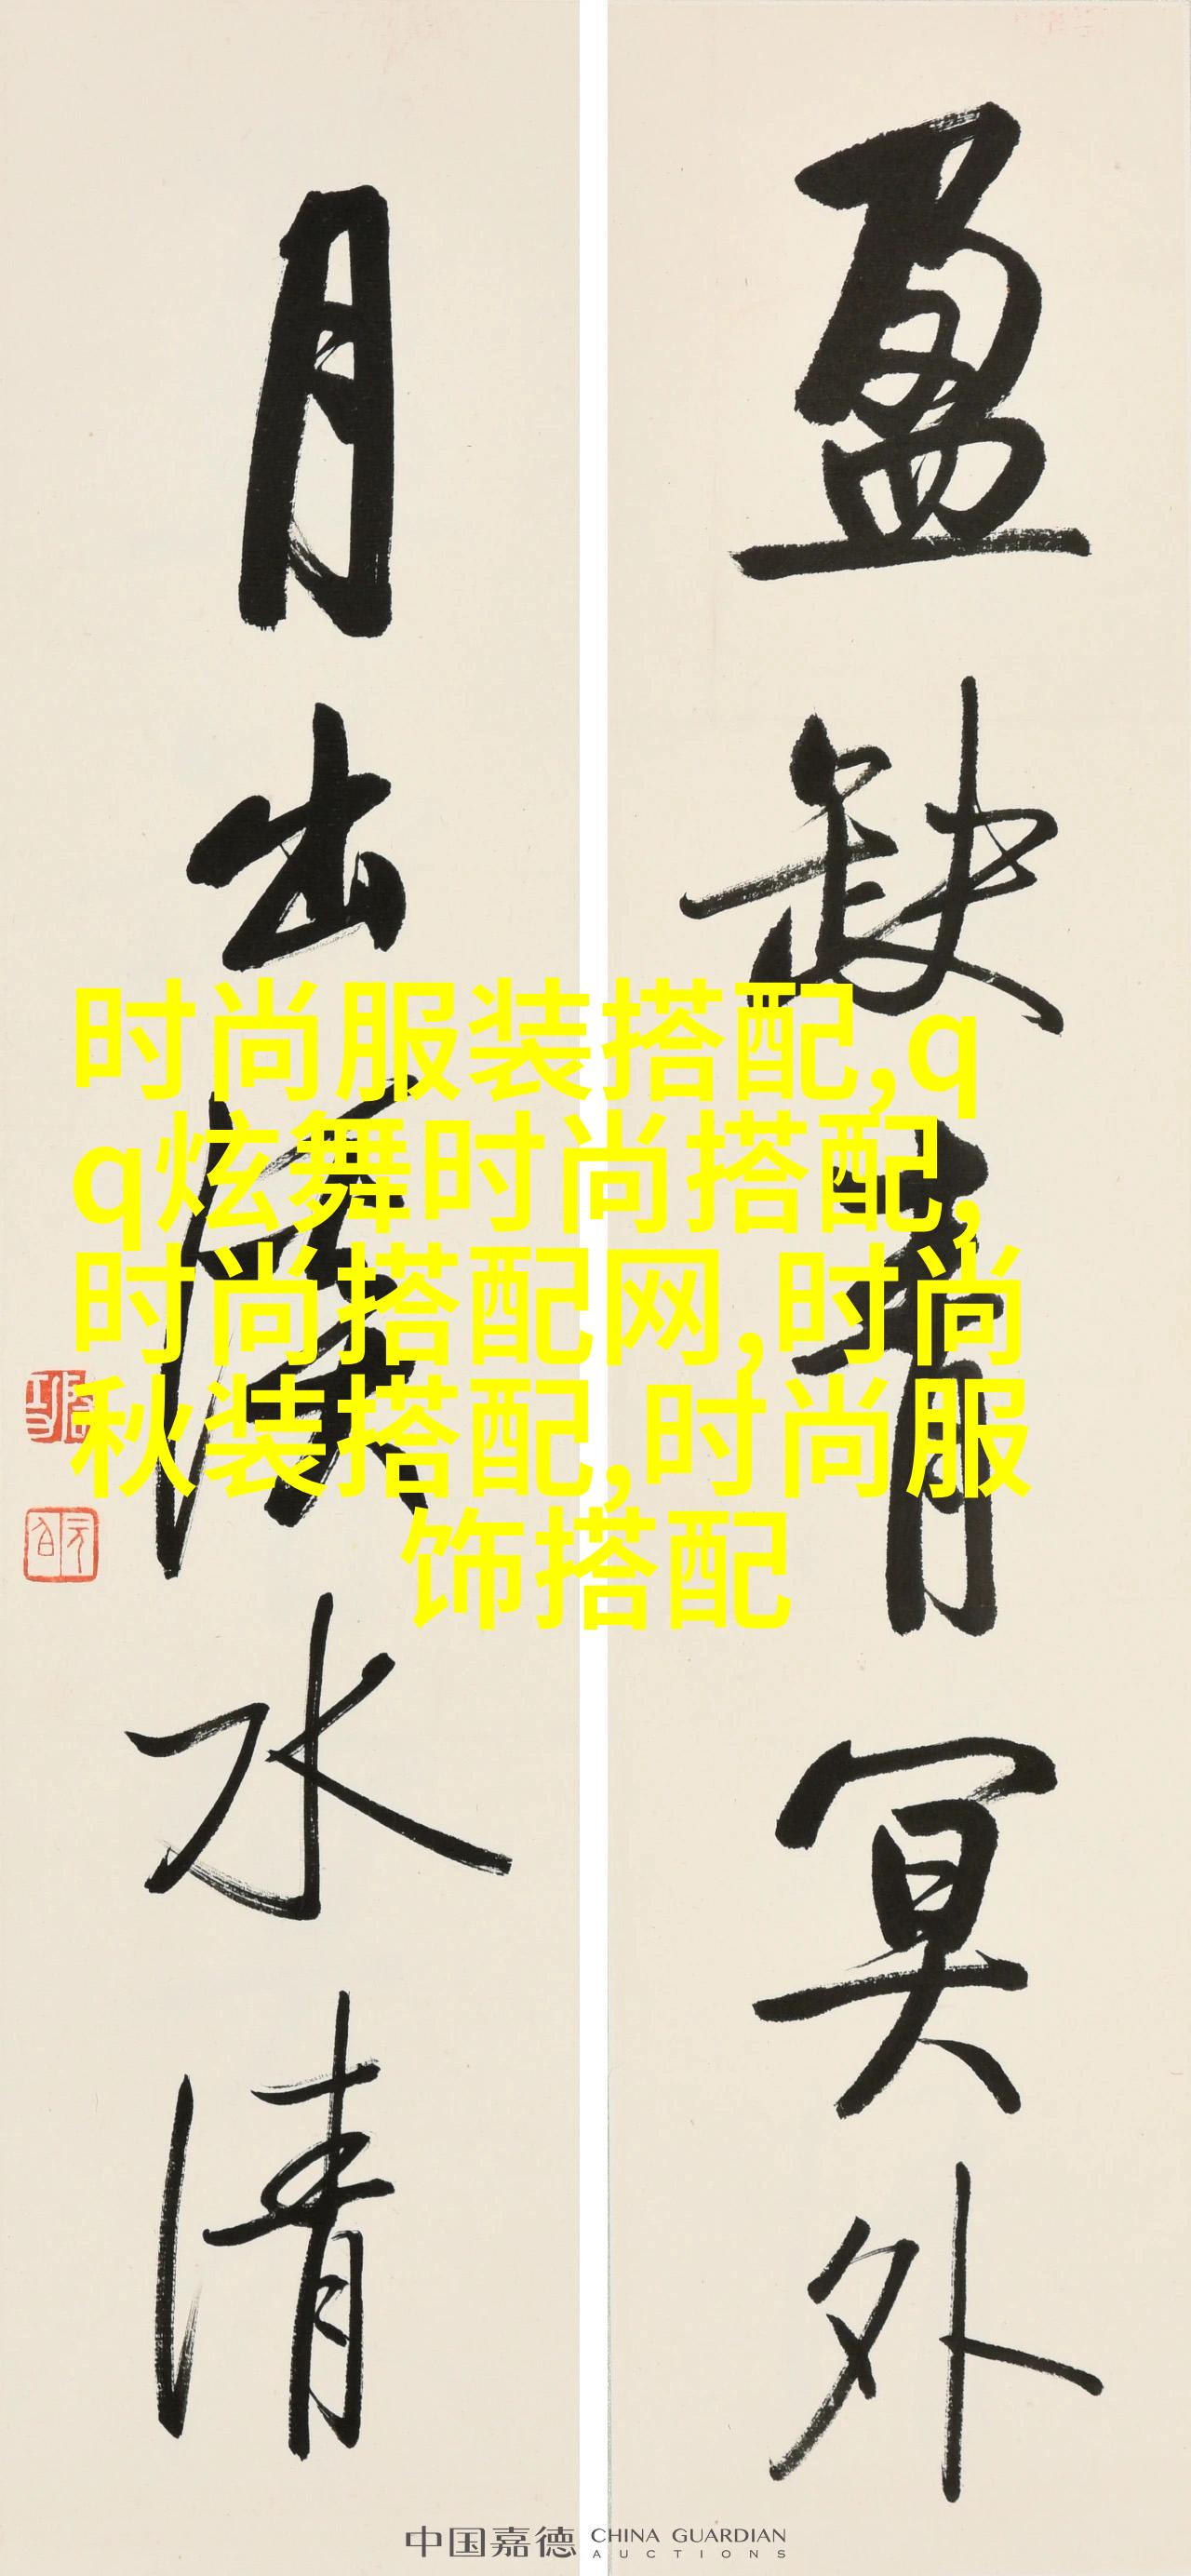 盈缺青冥外
月出漢水清
时尚服装搭配,q
q炫舞时尚搭配,
时尚搭配网,时尚
秋装搭配,时尚服
饰搭配
中国嘉德 CHINA GUARDIAN
AUCTIONS